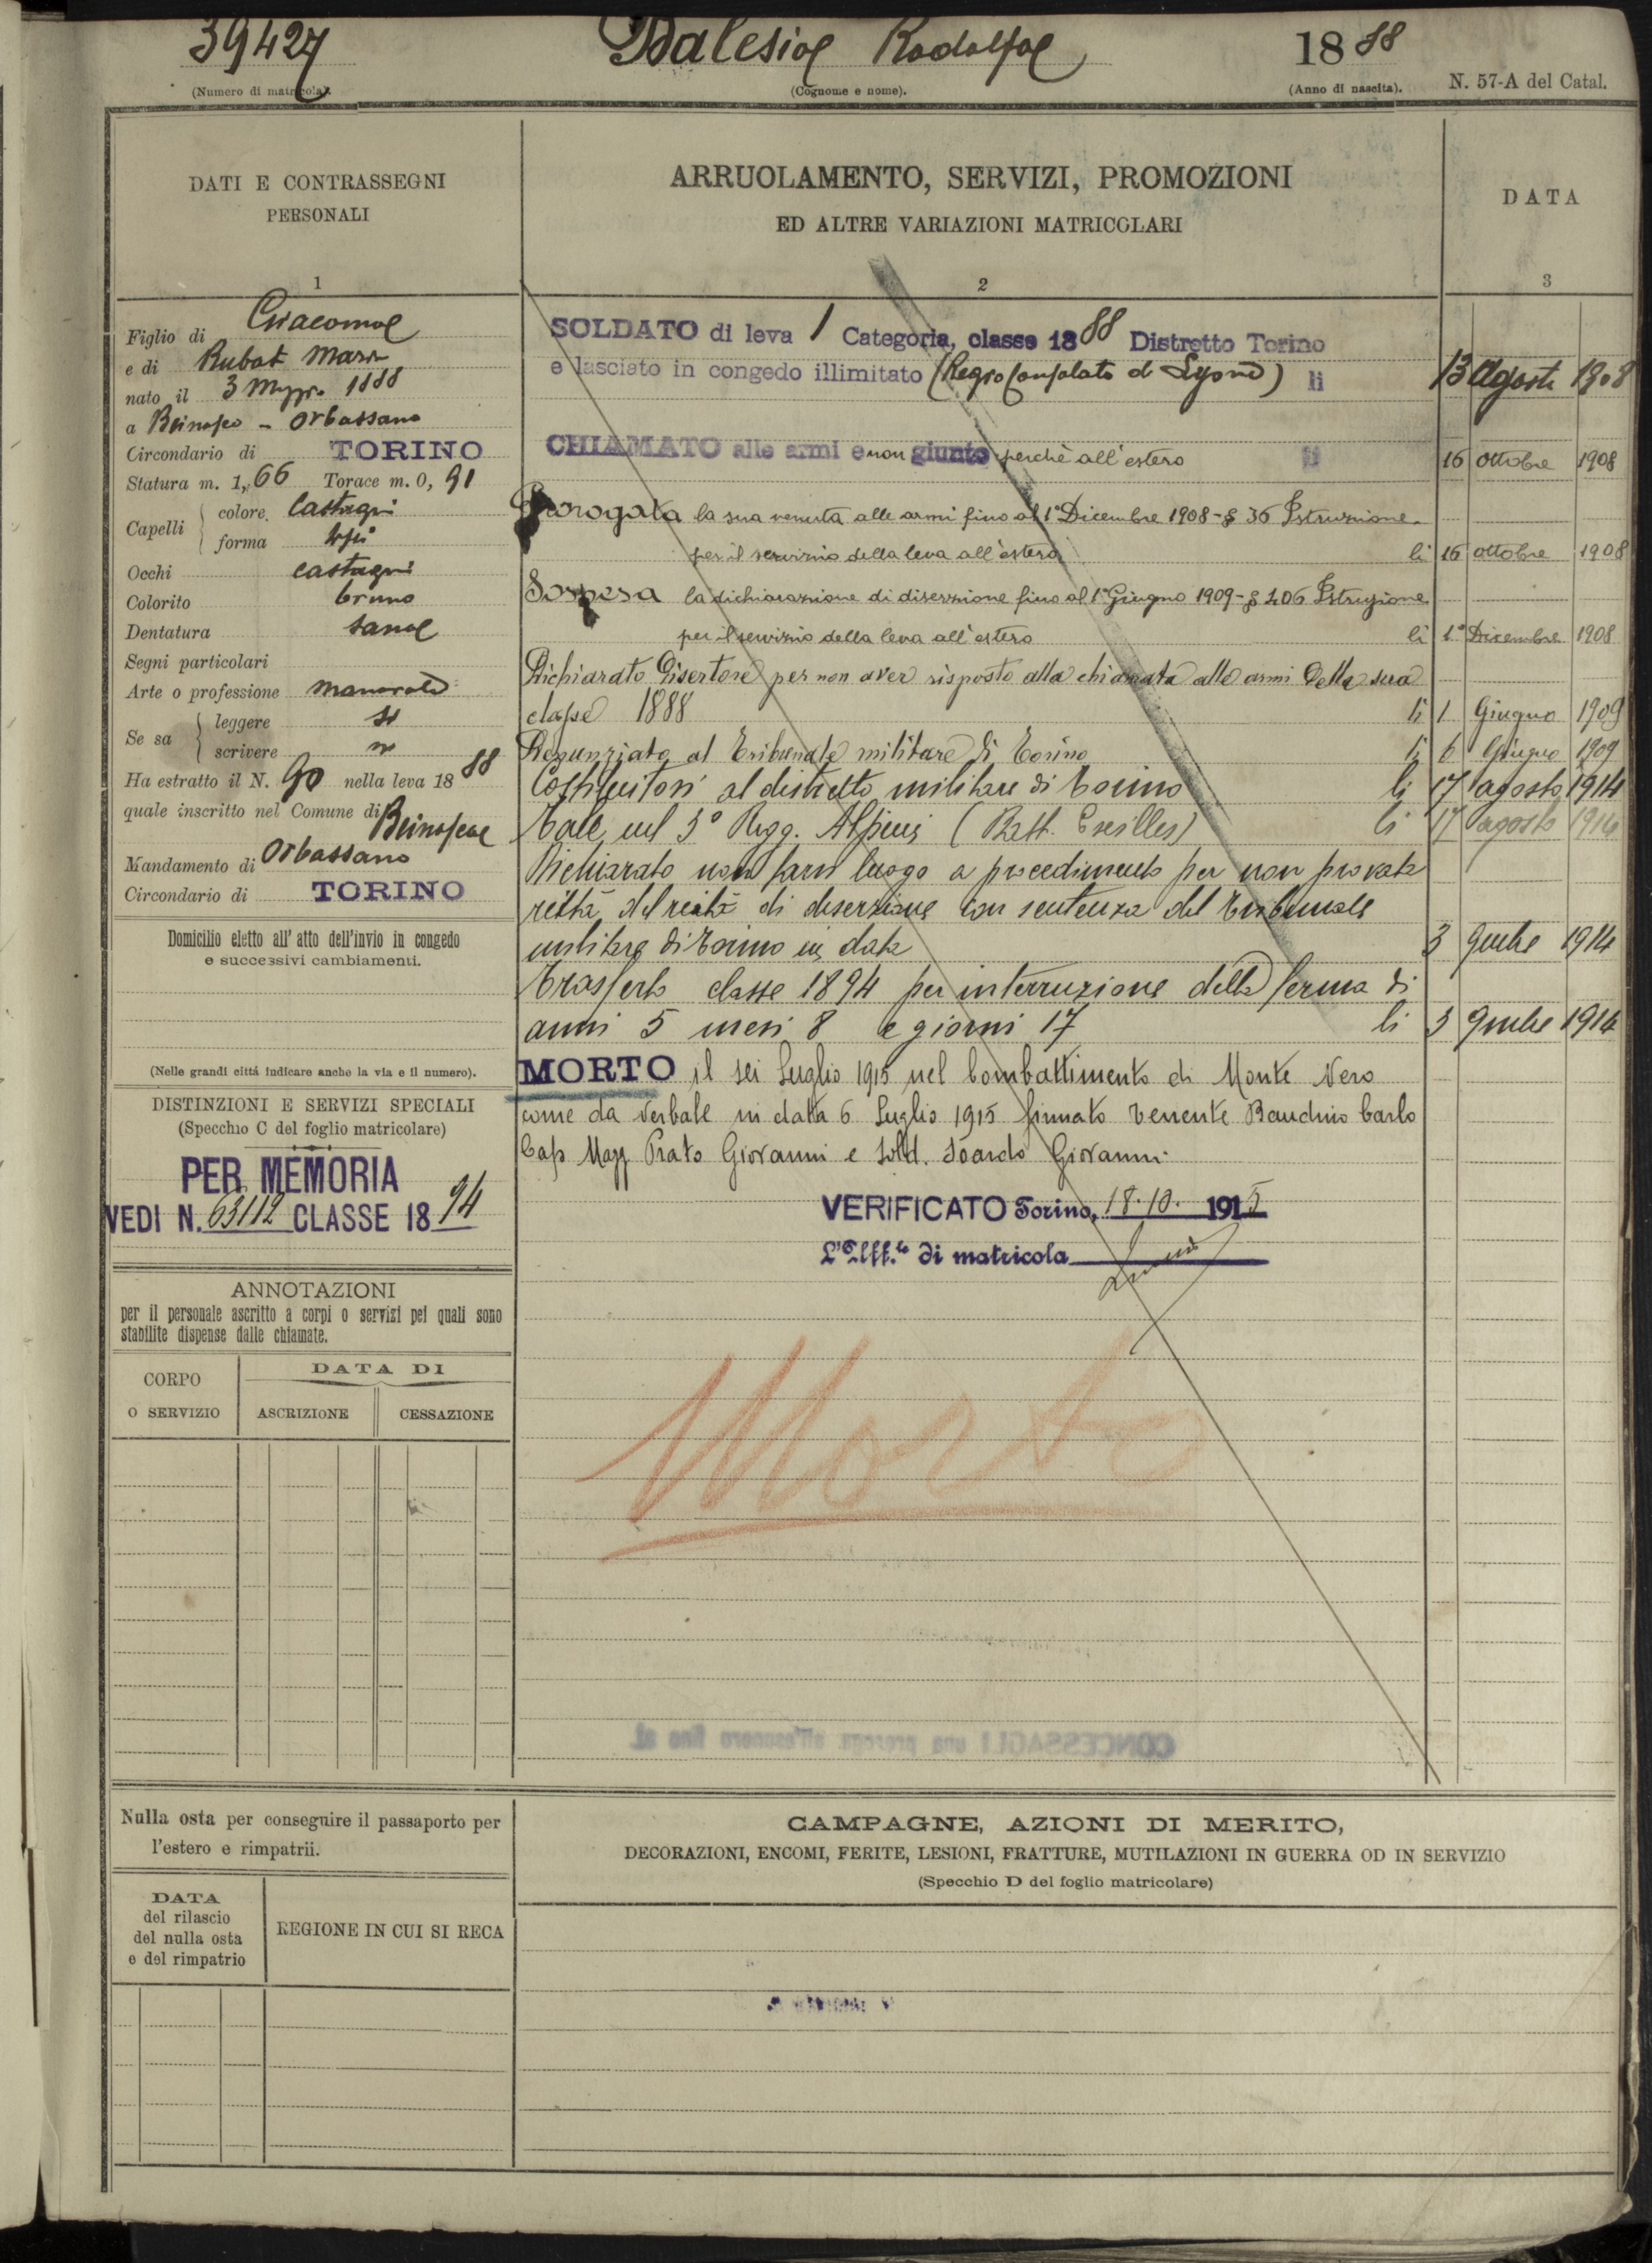 39427
Balesio Rodolfo
1888
(Numero di matricola).
(Cognome e nome).
(Anno di nascita).
N. 57-A del Catal.
DATI E CONTRASSEGNI
PERSONALI
1
Figlio di Giacomo
e di Rubat Maria
nato il 3 Maggio 1888
a Beinasco - Orbassano
Circondario di TORINO
Statura m. 1, 66 Torace m. 0, 91
Capelli colore castagni
forma lisci
Occhi castagni
Colorito bruno
Dentatura sana
Segni particolari
Arte o professione manovale
Se sa leggere si
scrivere si
Ha estratto il N. 90 nella leva 1888
quale inscritto nel Comune di Beinasco
Mandamento di Orbassano
Circondario di TORINO
Domicilio eletto all' atto dell'invio in congedo
e successivi cambiamenti.
(Nelle grandi città indicare anche la via e il numero).
DISTINZIONI E SERVIZI SPECIALI
(Specchio C del foglio matricolare)
PER MEMORIA
VEDI N. 63112 CLASSE 1894
ANNOTAZIONI
per il personale ascritto a corpi o servizi pei quali sono
stabilite dispense dalle chiamate.
CORPO
O SERVIZIO
DATA DI
ASCRIZIONE
CESSAZIONE
ARRUOLAMENTO, SERVIZI, PROMOZIONI
ED ALTRE VARIAZIONI MATRICOLARI
2
DATA
3
SOLDATO di leva 1 Categoria, classe 1888 Distretto Torino
e lasciato in congedo illimitato (Regio Consolato di Lyone) li 13 Agosto 1908
CHIAMATO alle armi e non giunto perchè all'estero li 16 ottobre 1908
Prorogata la sua venuta alle armi fino al 1° Dicembre 1908 - § 36 Istruzione
per il servizio della leva all'estero li 16 ottobre 1908
Sospesa la dichiarazione di diserzione fino al 1° Giugno 1909 - § 206 Istruzione
per il servizio della leva all'estero li 1° Dicembre 1908
Dichiarato Disertore per non aver risposto alla chiamata alle armi della sua
classe 1888 li 1 Giugno 1909
Denunziato al Tribunale militare di Torino li 6 Giugno 1909
Costituitosi al distretto militare di Torino li 17 agosto 1914
Tale nel 3° Regg. Alpini (Batt. Exilles) li 17 agosto 1914
Dichiarato non farsi luogo a procedimento per non provata
reità del reità di diserzione con sentenza del Tribunale
militare di Torino in data 3 9mbre 1914
Trasferto classe 1894 per interruzione della ferma di
anni 5 mesi 8 e giorni 17 li 3 9mbre 1914
MORTO il sei Luglio 1915 nel combattimento di Monte Nero
come da Verbale in data 6 Luglio 1915 firmato Tenente Bauchino Carlo
Cap Magg Prato Giovanni e Sold. Soardo Giovanni
VERIFICATO Torino, 18.10. 1915
L'Uff.le di matricola
Morto
CONCESSAGLI una proroga all'esonero fino al
Nulla osta per conseguire il passaporto per
l'estero e rimpatrii.
DATA
del rilascio
del nulla osta
e del rimpatrio
REGIONE IN CUI SI RECA
CAMPAGNE, AZIONI DI MERITO,
DECORAZIONI, ENCOMI, FERITE, LESIONI, FRATTURE, MUTILAZIONI IN GUERRA OD IN SERVIZIO
(Specchio D del foglio matricolare)